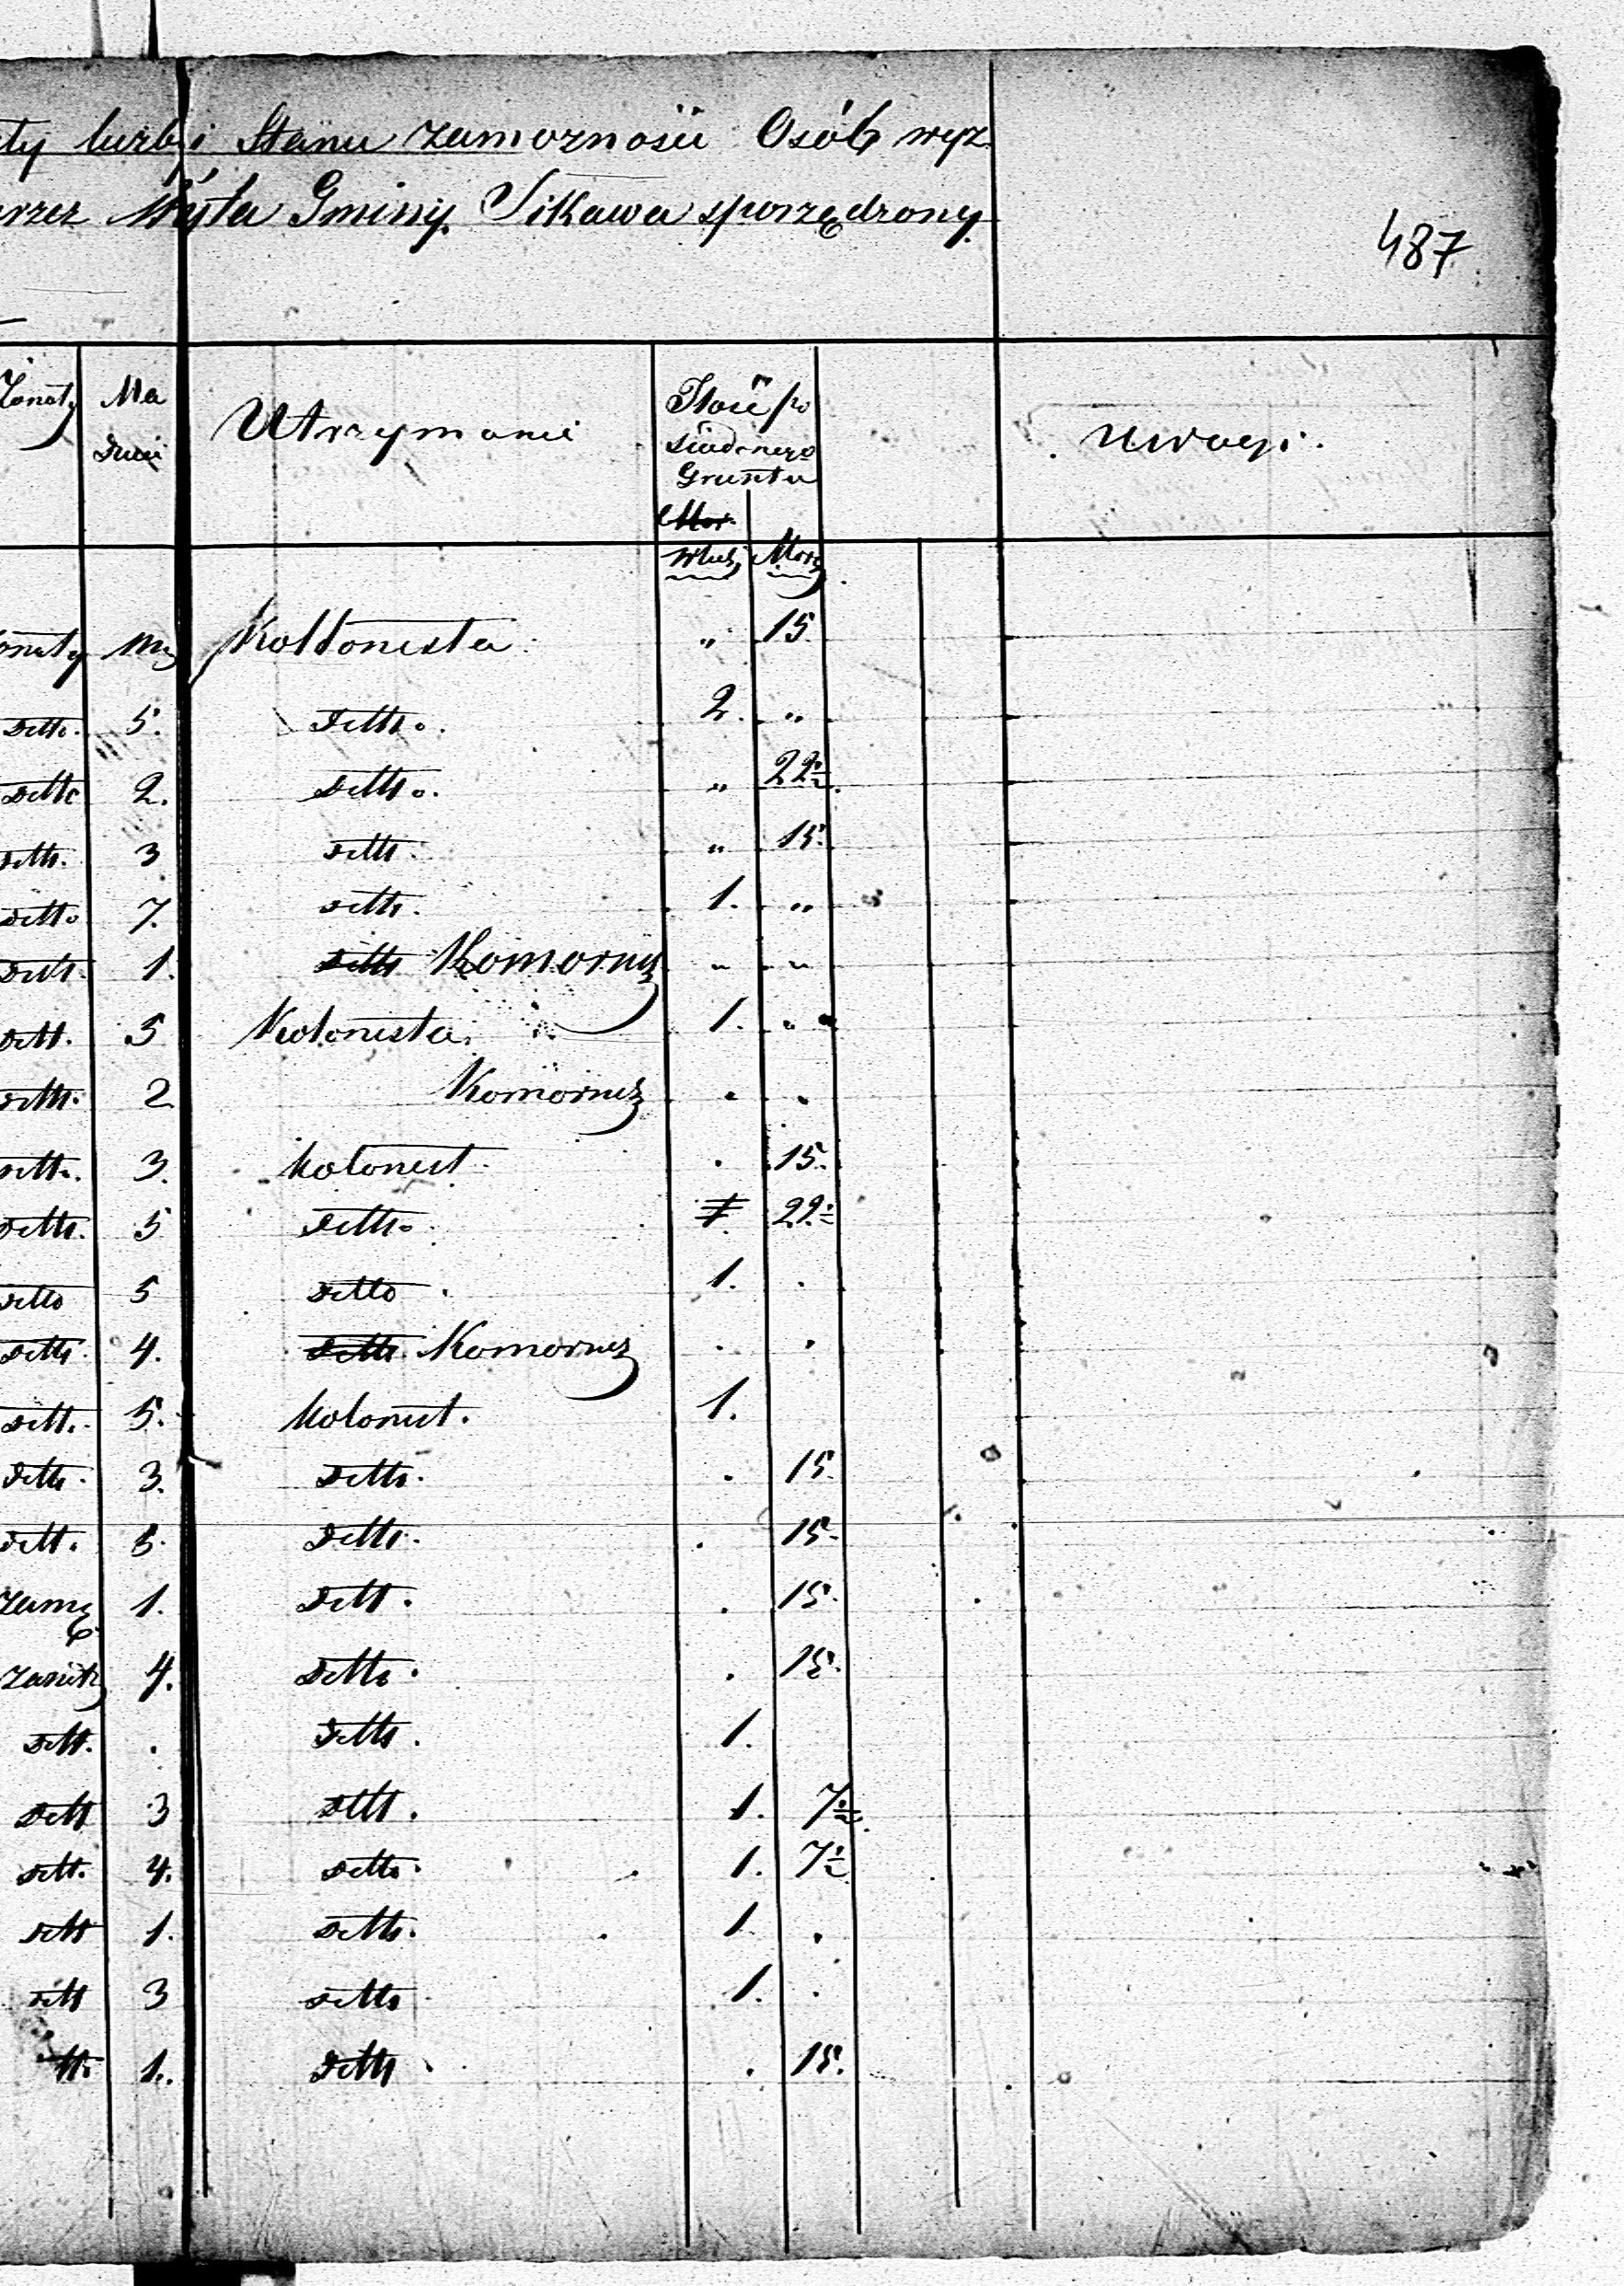 ty liczby i Stanu zamoznosii Osób wyz.
przez Wójta Gminy Sikawa sporządzony
487
Żonaty Ma Dzieci Utrzymanie Ilość po siadanego Gruntu Uwagi.
Mor.
Włuk Morg
onaty Kollonista „ 15
Detto. 5. Detto. 2. „
Detto 2. Detto. „ 22½
detto. 3 detto. „ 15.
detto 7. detto. 1. „
Detto. 1. Detto Komornik „ „
dett. 5 Kolonista. 1. „
detto. 2 Komornik . .
detto. 3. Kolonist . 15.
Detto. 5 Detto. 22½
detto 5 detto. 1. .
detto. 4. Detto Komornik . .
dett. 5. Kolonist. 1.
detto. 3. Detto. . 15.
dett. 5. Detto. . 15.
Zamę 1. Dett. . 15.
4. Detto. . 15.
dett. . Detto. 1.
Dett 3 dett. 1. 7½
dett. 4. detto. 1. 7½
dett 1. detto. 1. .
dett 3 detto 1. .
tt. 1. Detto . 15.